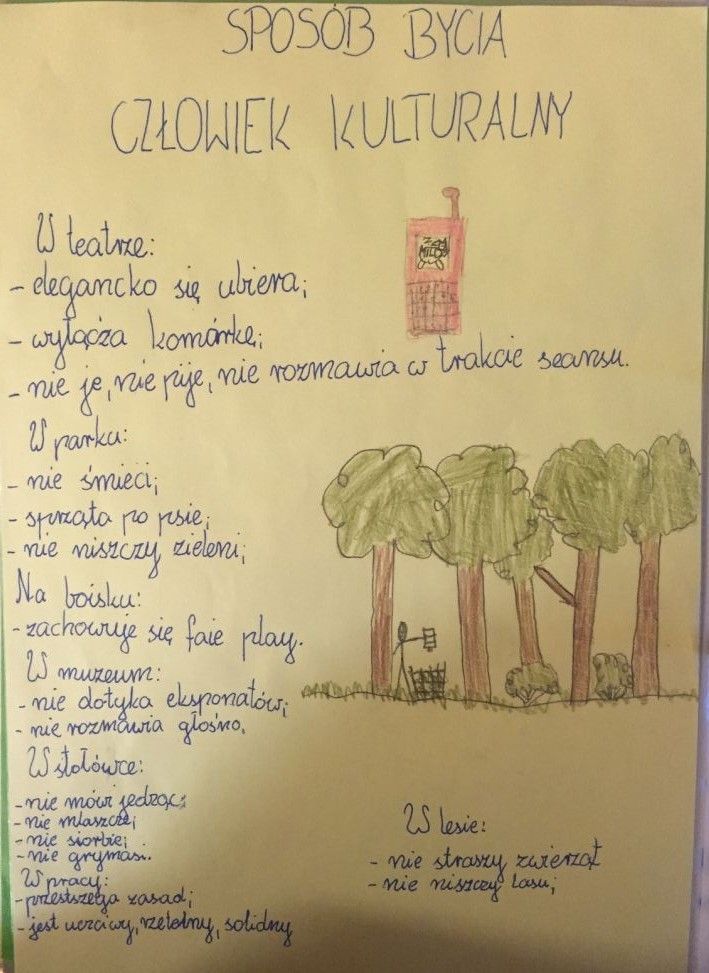 SPOSÓB BYCIA
CZŁOWIEK KULTURALNY
W teatrze:
- elegancko się ubiera;
- wyłącza komórkę;
- nie je, nie pije, nie rozmawia w trakcie seansu.
W parku:
- nie śmieci;
- sprząta po psie;
- nie niszczy zieleni;
Na boisku:
- zachowuje się faie play.
W muzeum:
- nie dotyka eksponatów;
- nie rozmawia głośno.
W stołówce:
- nie mówi jedząc;
- nie mlaszcze;
- nie siorbie;
- nie grymasi.
W pracy:
- przestszega zasad;
- jest uczciwy, rzetelny, solidny
W lesie:
- nie straszy zwierząt
- nie niszczy lasu;